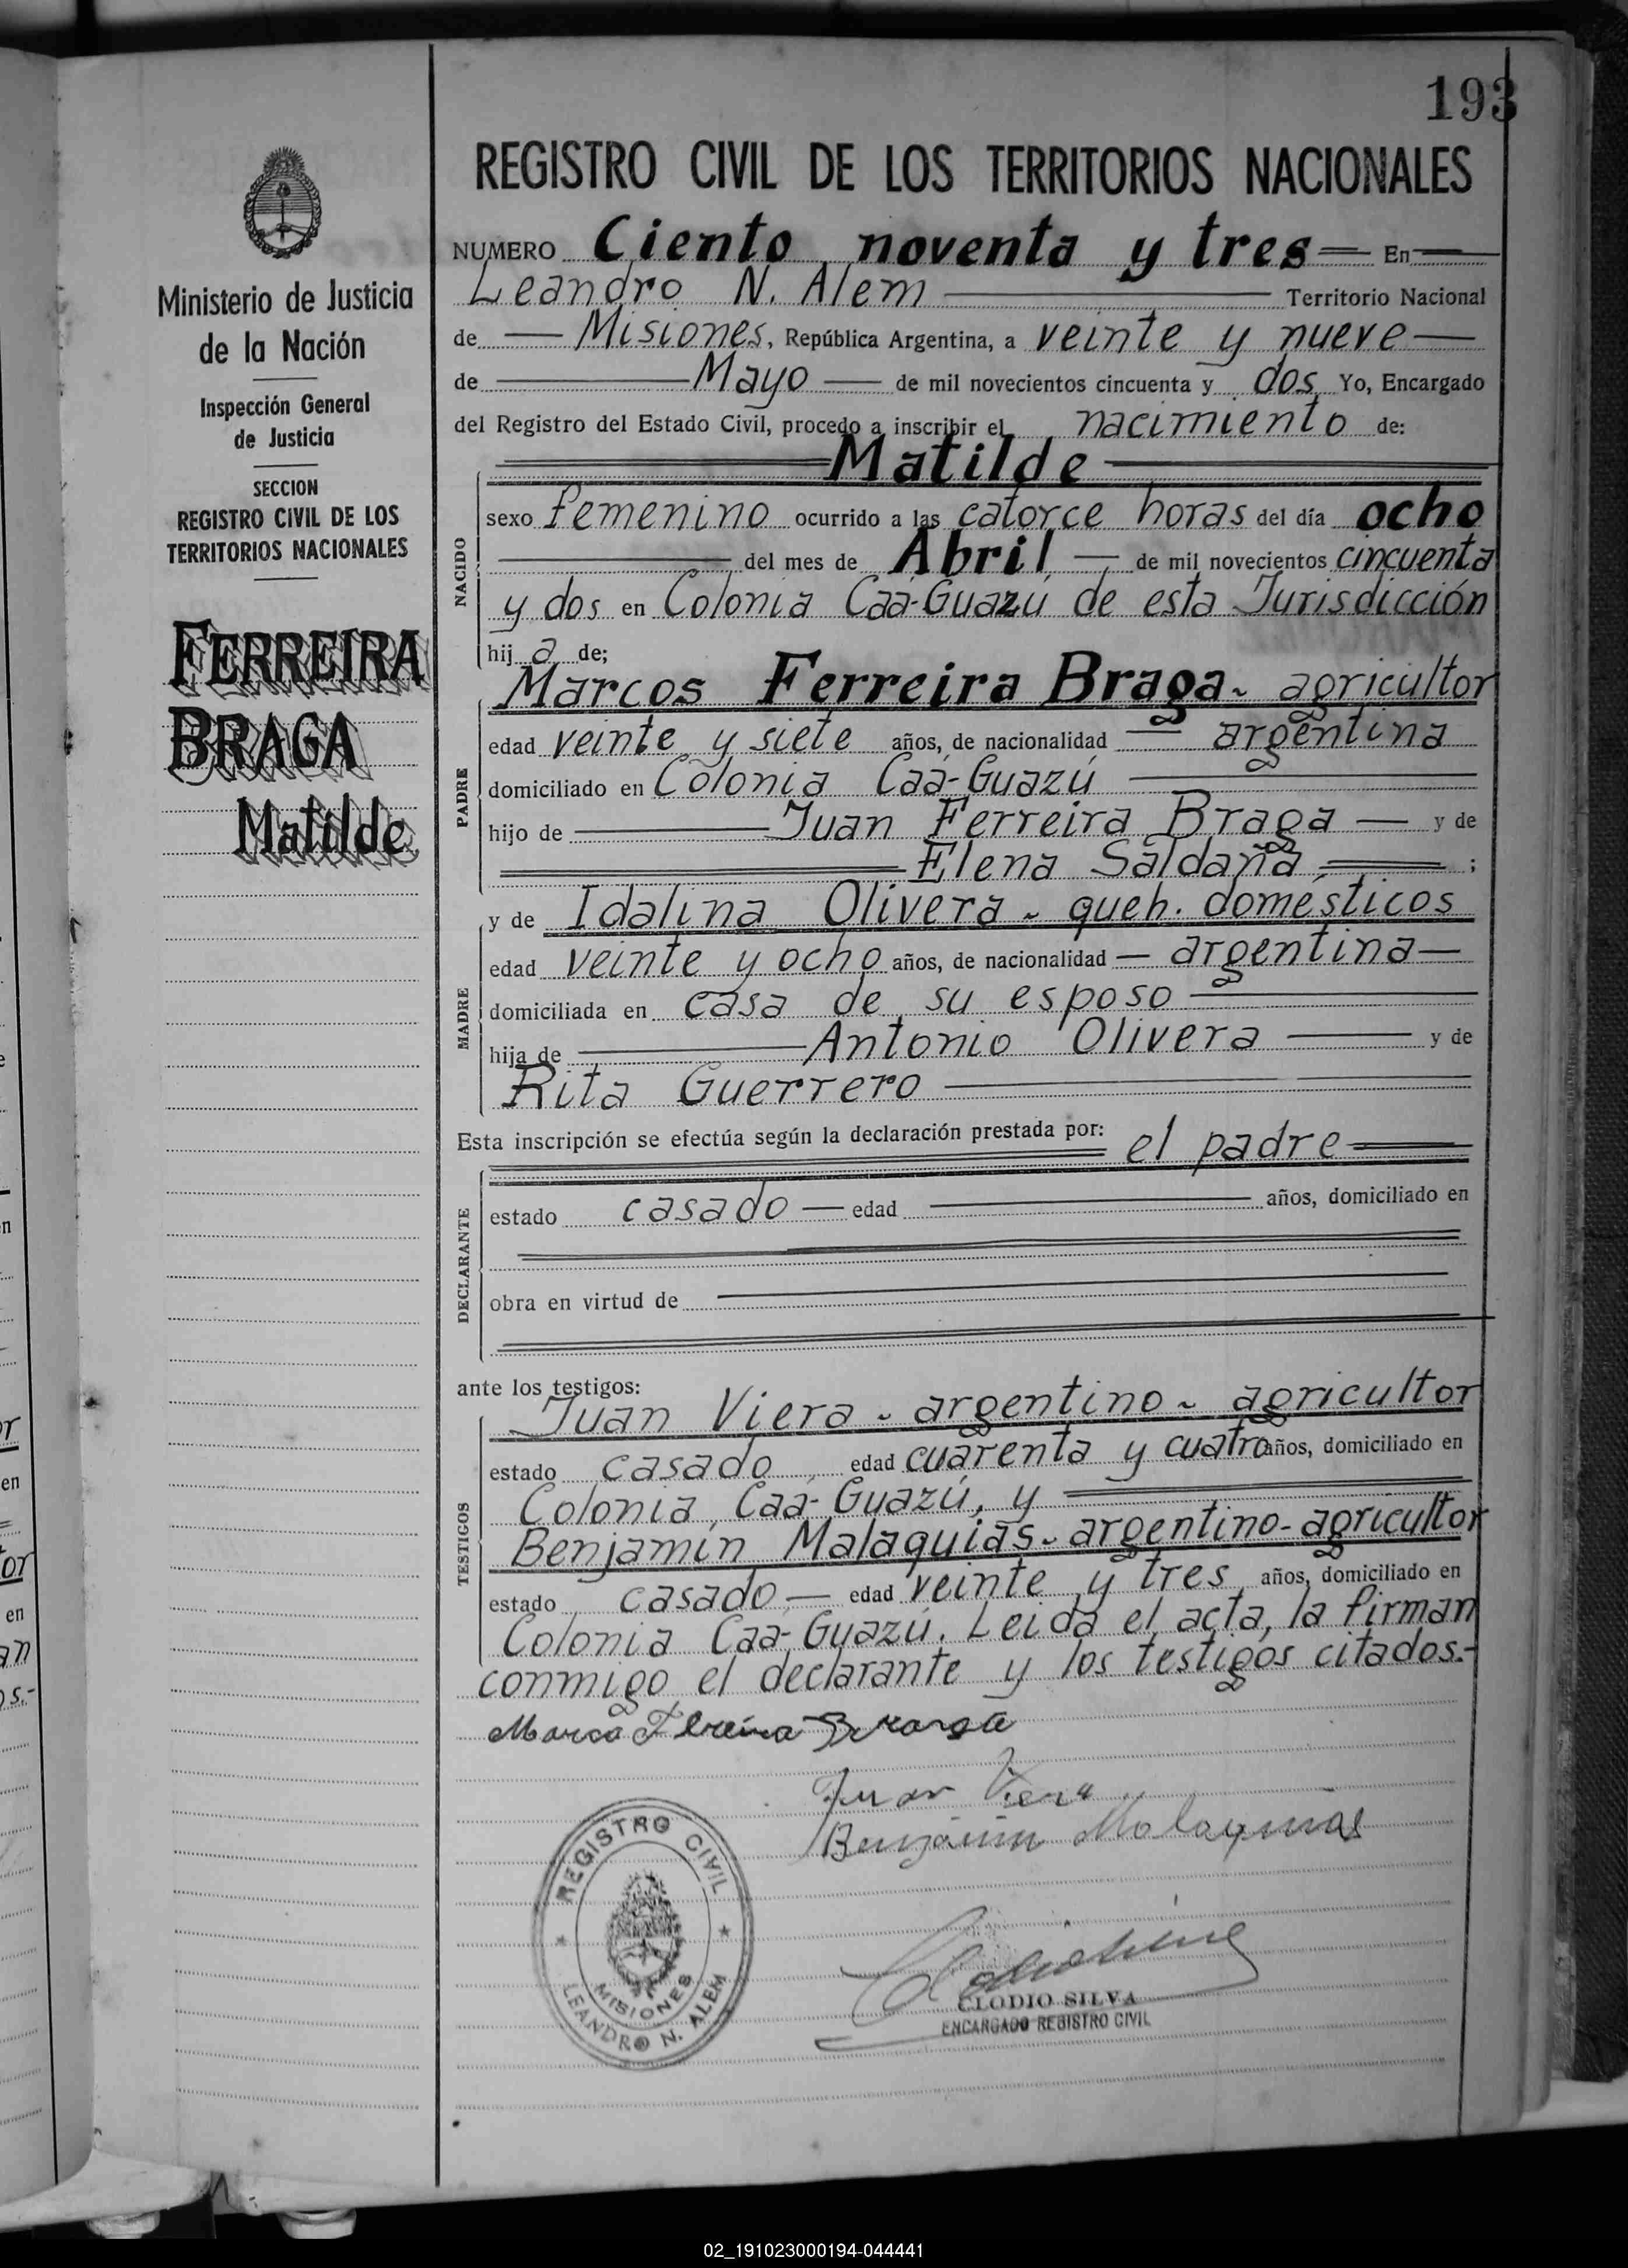 193
REGISTRO CIVIL DE LOS TERRITORIOS NACIONALES
Ministerio de Justicia
de la Nación
Inspección General
de Justicia
SECCION
REGISTRO CIVIL DE LOS
TERRITORIOS NACIONALES
FERREIRA
BRAGA
Matilde
NUMERO Ciento noventa y tres En
Leandro N. Alem Territorio Nacional
de Misiones, República Argentina, a veinte y nueve
de Mayo de mil novecientos cincuenta y dos Yo, Encargado
del Registro del Estado Civil, procedo a inscribir el nacimiento de:
Matilde
NACIDO
sexo femenino ocurrido a las catorce horas del día ocho
del mes de Abril de mil novecientos cincuenta
y dos en Colonia Caa-Guazú de esta Jurisdicción
hij a de;
PADRE
Marcos Ferreira Braga - agricultor
edad veinte y siete años, de nacionalidad argentina
domiciliado en Colonia Caá-Guazú
hijo de Juan Ferreira Braga y de
Elena Saldaña ;
MADRE
y de Idalina Olivera - queh. domésticos
edad veinte y ocho años, de nacionalidad argentina
domiciliada en casa de su esposo
hija de Antonio Olivera y de
Rita Guerrero
Esta inscripción se efectúa según la declaración prestada por: el padre
DECLARANTE
estado casado edad años, domiciliado en
obra en virtud de
ante los testigos:
TESTIGOS
Juan Viera - argentino - agricultor
estado casado edad cuarenta y cuatro años, domiciliado en
Colonia Caa-Guazú, y
Benjamin Malaquias - argentino - agricultor
estado casado edad veinte y tres años, domiciliado en
Colonia Caa-Guazú. Leida el acta, la firman
conmigo el declarante y los testigos citados.-
Marco Braga
Juan Viera
Benjamin Malaquias
REGISTRO CIVIL
MISIONES
LEANDRO N. ALEM
CLODIO SILVA
ENCARGADO REGISTRO CIVIL
02_191023000194-044441